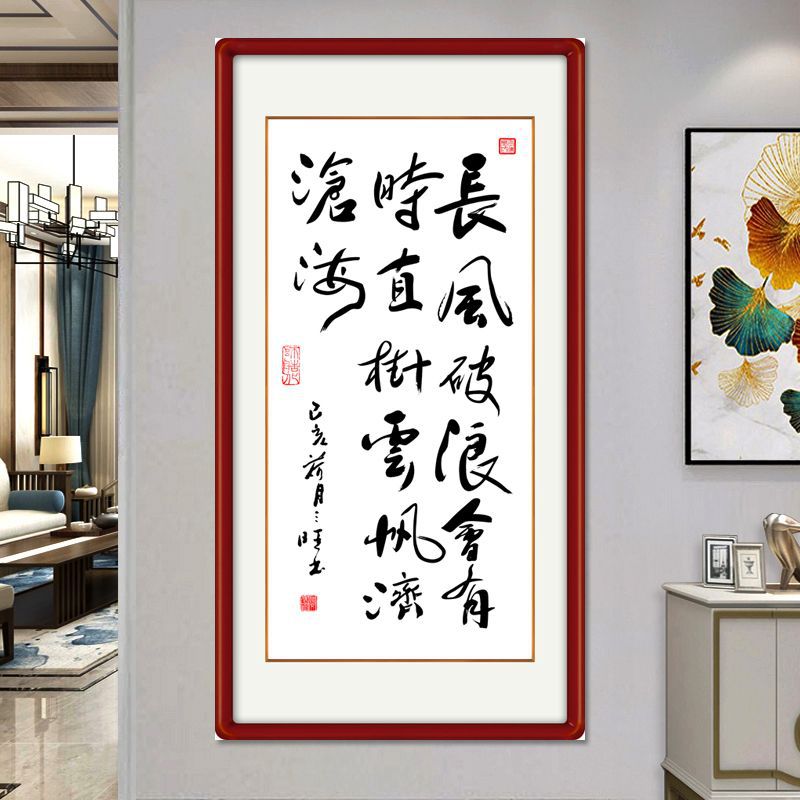 長風破浪會有
時直掛雲帆濟
滄海
己亥荷月三旺书